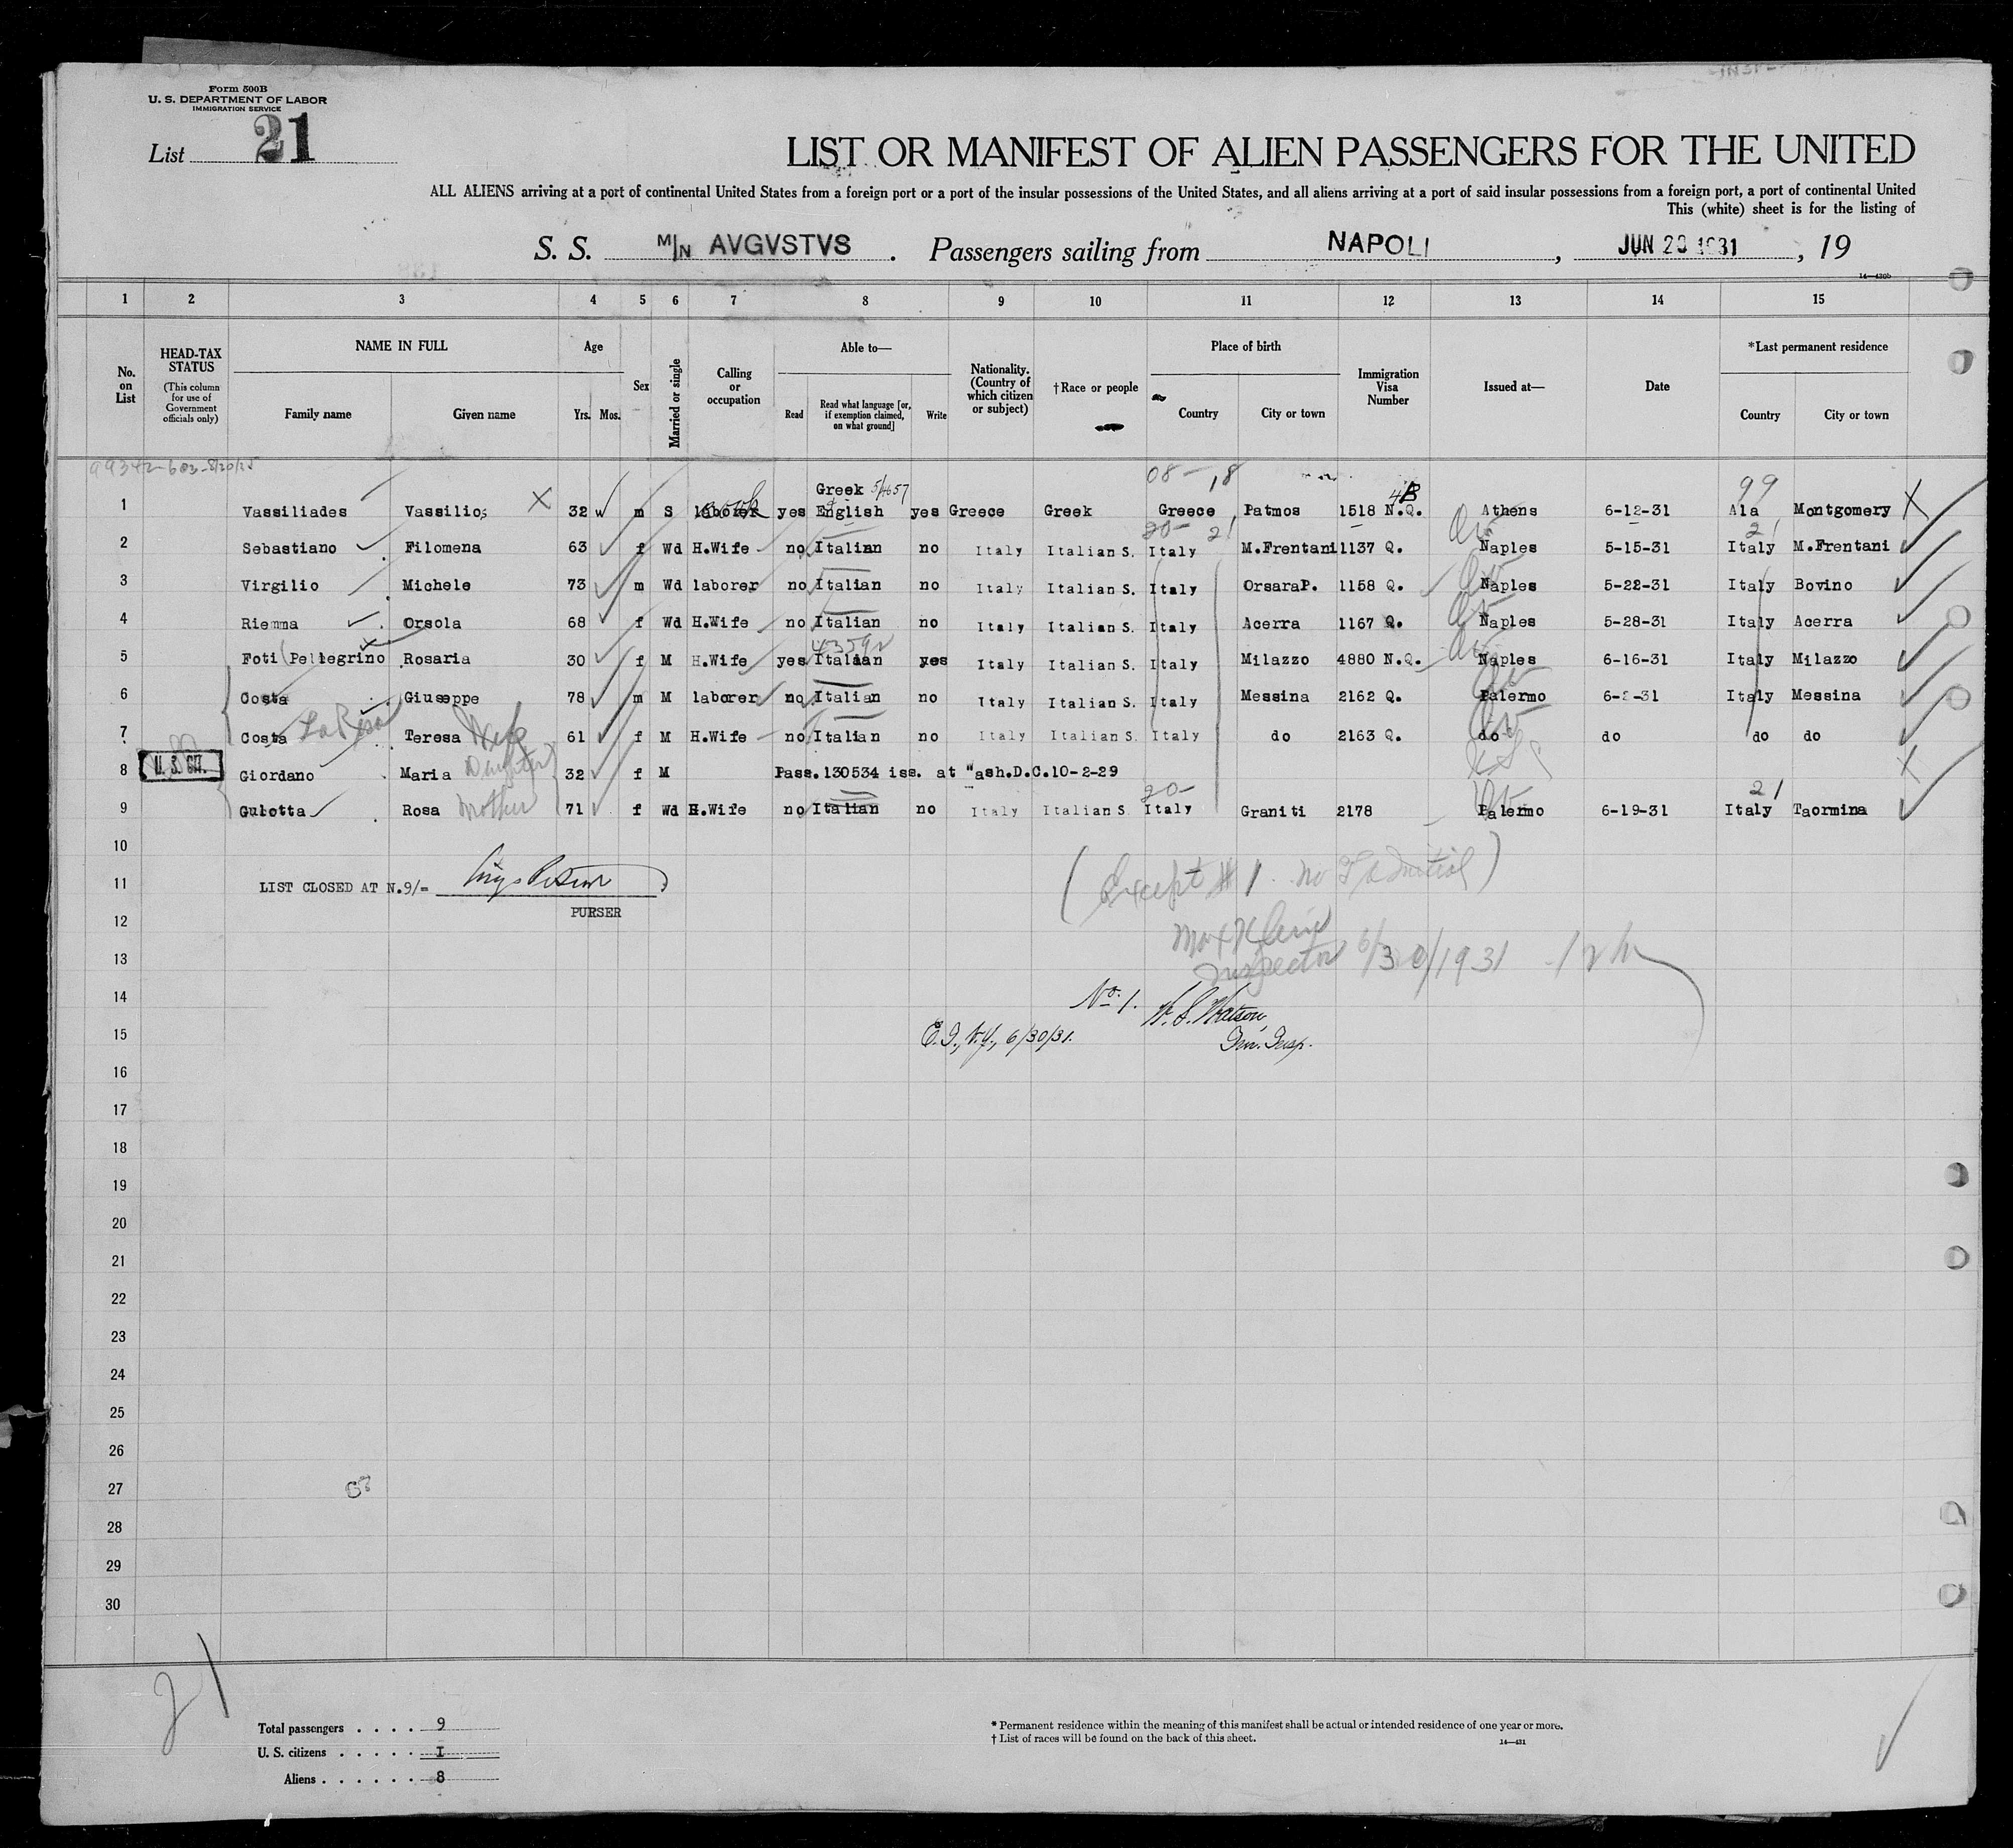 Form 500B
U. S. DEPARTMENT OF LABOR
IMMIGRATION SERVICE
List 21
LIST OR MANIFEST OF ALIEN PASSENGERS FOR THE UNITED
ALL ALIENS arriving at a port of continental United States from a foreign port or a port of the insular possessions of the United States, and all aliens arriving at a port of said insular possessions from a foreign port, a port of continental United
This (white) sheet is for the listing of
S. S. M/N AVGVSTVS . Passengers sailing from NAPOLI , JUN 20 1931 , 19
14—430b
1 2 3 4 5 6 7 8 9 10 11 12 13 14 15
No. on List
HEAD-TAX STATUS (This column for use of Government officials only)
NAME IN FULL Family name Given name
Age Yrs. Mos.
Sex
Married or single
Calling or occupation
Able to— Read Read what language [or, if exemption claimed, on what ground] Write
Nationality. (Country of which citizen or subject)
†Race or people
Place of birth Country City or town
Immigration Visa Number
Issued at—
Date
*Last permanent residence Country City or town
99342-603-8/20/25 08-,8
Greek 5/4657 4B 99
1 Vassiliades Vassilios X 32 w m S laborer yes English yes Greece Greek Greece Patmos 1518 N.Q. Athens 6-12-31 Ala Montgomery X
20- 21 21
2 Sebastiano Filomena 63 f Wd H.Wife no Italian no Italy Italian S. Italy M.Frentani 1137 Q. Naples 5-15-31 Italy M.Frentani
3 Virgilio Michele 73 m Wd laborer no Italian no Italy Italian S. Italy OrsaraP. 1158 Q. Naples 5-22-31 Italy Bovino
4 Riemma Orsola 68 f Wd H.Wife no Italian no Italy Italian S. Italy Acerra 1167 Q. Naples 5-28-31 Italy Acerra
5 Foti (Pellegrino Rosaria 30 f M H.Wife yes Italian yes Italy Italian S. Italy Milazzo 4880 N.Q. Naples 6-16-31 Italy Milazzo
6 Costa Giuseppe 78 m M laborer no Italian no Italy Italian S. Italy Messina 2162 Q. Palermo 6-2-31 Italy Messina
7 Costa LaRosa Teresa Wife 61 f M H.Wife no Italian no Italy Italian S. Italy do 2163 Q. do do do do
8 U. S. CIT. Giordano Maria Daughter 32 f M Pass.130534 iss. at "ash.D.C.10-2-29 X
20- 21
9 Gulotta Rosa Mother 71 f Wd H.Wife no Italian no Italy Italian S Italy Graniti 2178 Palermo 6-19-31 Italy Taormina
10
(Except #1
11 LIST CLOSED AT N.9/=
12 PURSER
Max Klein
13 Inspector 6/30/1931
14 No. 1. W. S. Watson,
15 E.I., N.Y., 6/30/31. Imm. Insp.
16
17
18
19
20
21
22
23
24
25
26
27
28
29
30
21
Total passengers . . . . 9
U. S. citizens . . . . . I
Aliens . . . . . . 8
* Permanent residence within the meaning of this manifest shall be actual or intended residence of one year or more.
† List of races will be found on the back of this sheet.
14—431